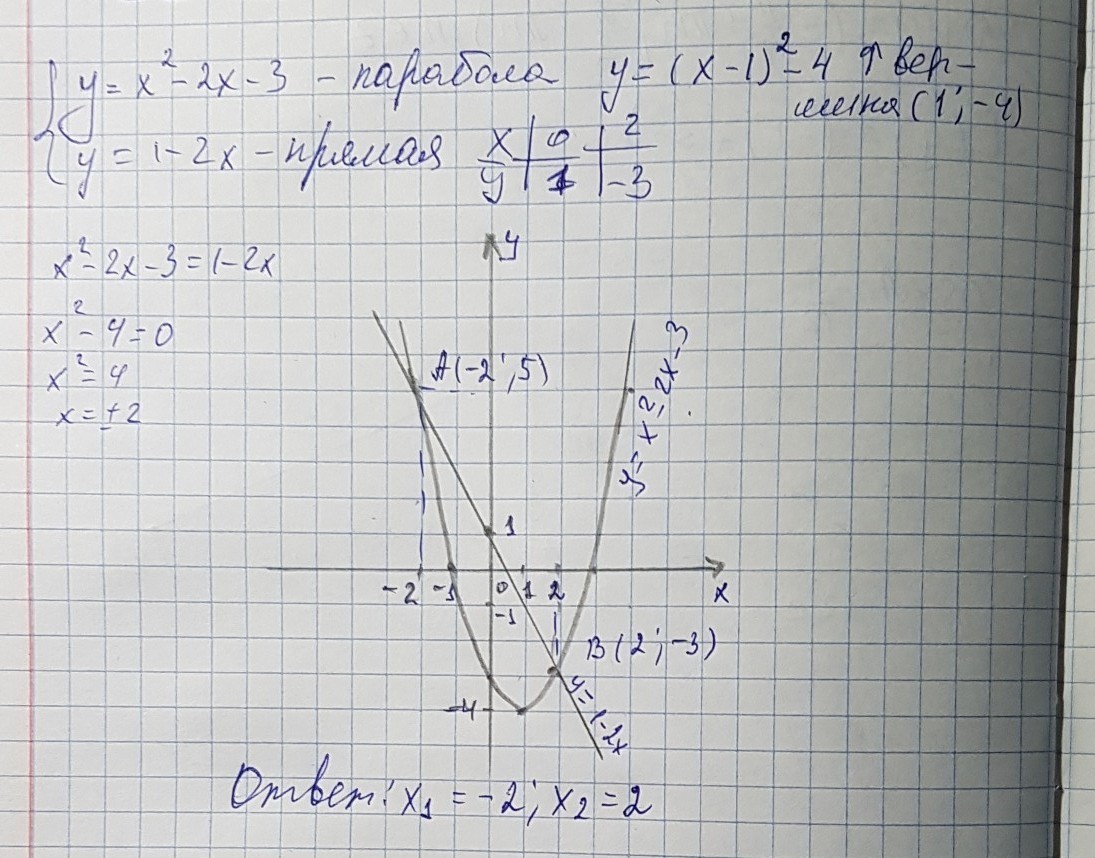 y = x² - 2x - 3 - парабола y = (x - 1)² - 4 ↑ вер-
шина (1; -4)
y = 1 - 2x - прямая x | 0 | 2
y | 1 | -3
y
x² - 2x - 3 = 1 - 2x
x² - 4 = 0
x² = 4
x = ±2
A(-2; 5)
y = x² - 2x - 3
1
-2 -1 0 1 2 x
-1
B(2; -3)
-4
y = 1 - 2x
Ответ: x₁ = -2; x₂ = 2